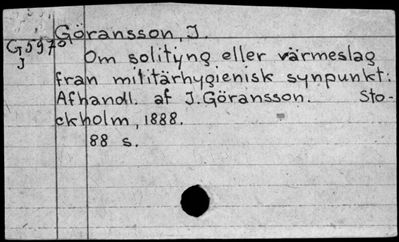 Göransson, J.
G597°
J
Om solitýng eller värmeslag
från mititärhygienisk synpunkt:
Afhandl. af J.Göransson. Sto-
ckholm, 1888.
88 s.